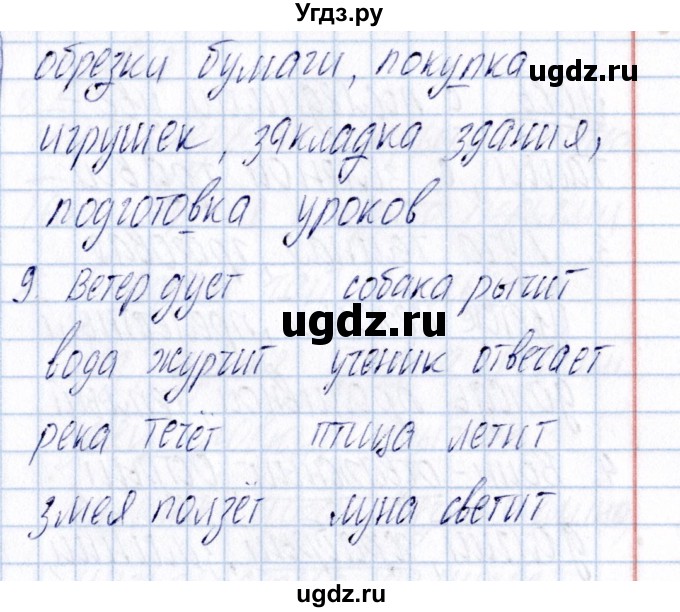 Угдз.ру
обрезки бумаги, покупка
ugdz.ru
игрушек, закладка здания,
подготовка уроков
9. Ветер дует собака рычит
ugdz.ru
вода журчит ученик отвечает
река течёт птица летит
змея ползёт луна светит
ugdz.ru